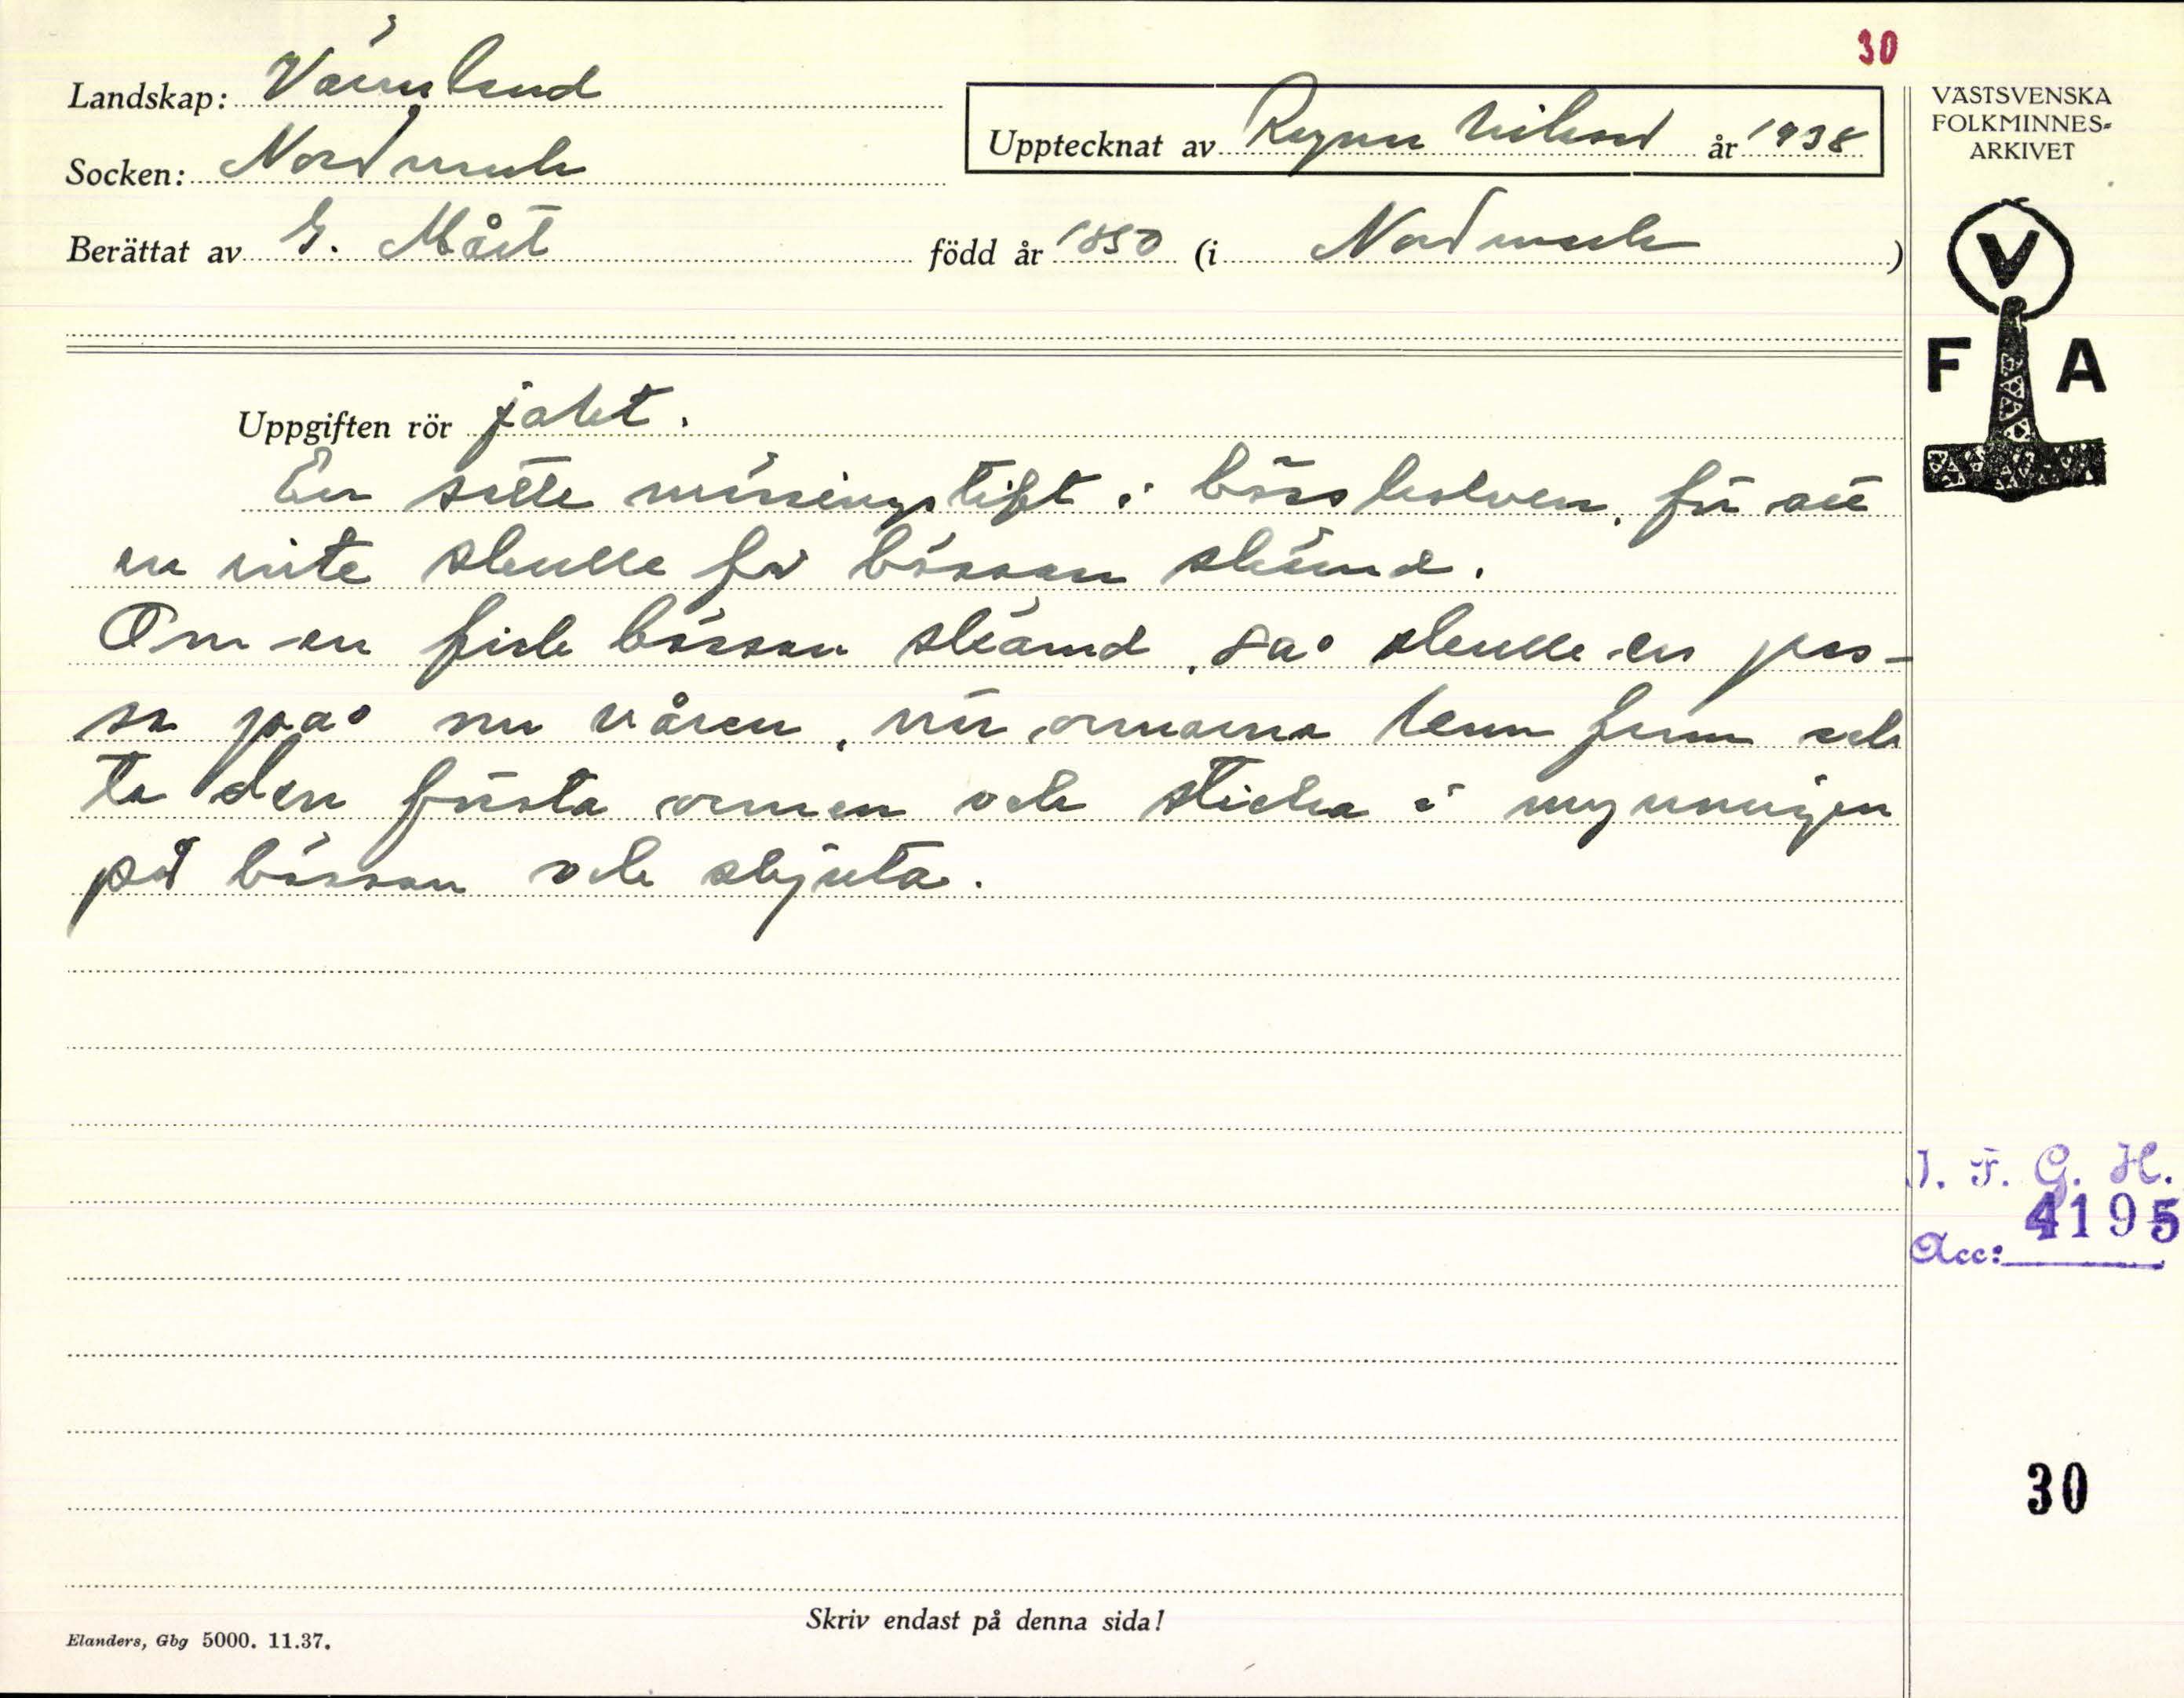 30
Landskap: Värmland
Upptecknat av Ragnar Nilsson år 1938
Socken: Nordmark
Berättat av G. Måst född år 1850 (i Nordmark)
VÄSTSVENSKA
FOLKMINNES-
ARKIVET
V
F A
Uppgiften rör jakt.
En sätte mässingstift i bösskolven, för att
en inte skulle få bössan skämd.
Om en fick bössan skämd, så skulle en pas-
sa på om våren, när ormarna kom fram och
ta den första ormen och sticka i mynningen
på bössan och skjuta.
I. F. G. H.
4195
Acc:
30
Skriv endast på denna sida!
Elanders, Gbg 5000. 11.37.